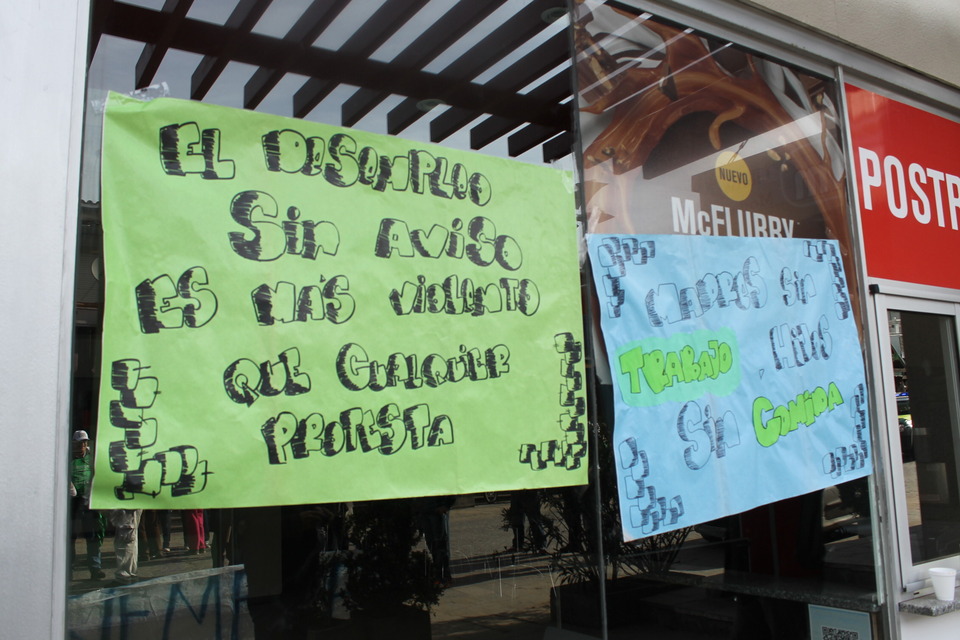 EL DESEMPLEO
SIN AVISO
ES MÁS VIOLENTO
QUE CUALQUIER
PROTESTA
NUEVO
McFLURRY
MADRES SIN
TRABAJO, HIJOS
SIN COMIDA
POSTR